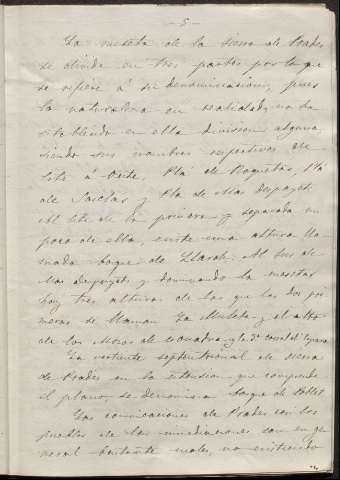 - 5 -
La meseta de la Sierra de Prades
se divide en tres partes por lo que
se refiere á su denominacion, pues
la naturaleza en realidad, no ha
establecido en ella division alguna,
siendo sus nombres respectivos de
Este á Oeste, Plá de Roquetas, Plá
de y Plá de Mas
Al Este de la primera y separada un
poco de ella, existe una altura lla-
mada Al Sur de
Mas y dominando la meseta
hay tres alturas de las que las dos pri-
meras se llaman La Muleta y el alto
de los Mosos de
La vertiente septentrional de Sierra
de Prades en la extension que comprende
el plano, se denomina bosque de Poblet.
Las comunicaciones de Prades con los
pueblos de las inmediaciones son en ge-
neral bastante malas, no existiendo